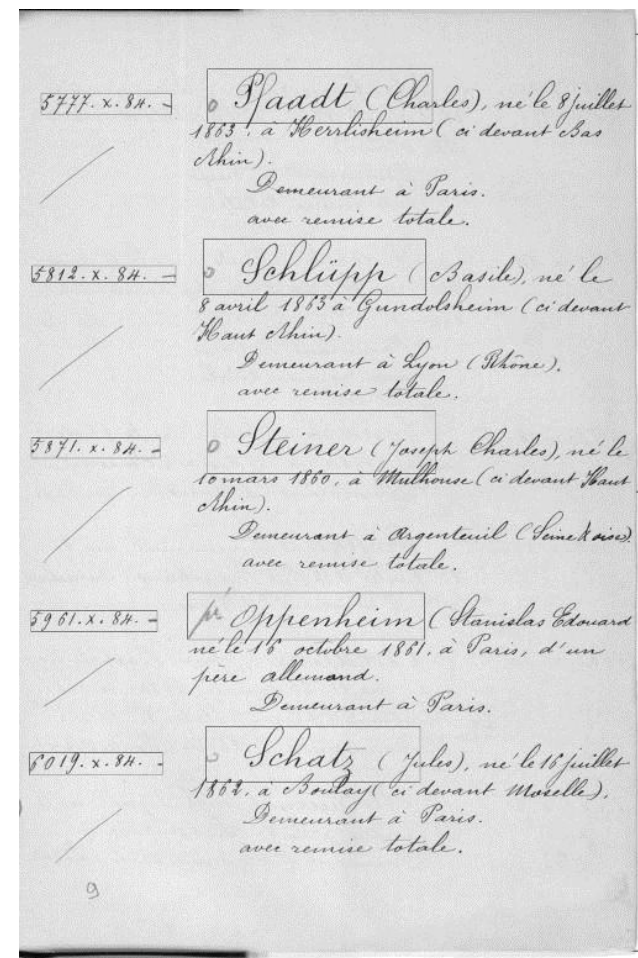 5777. x. 84. – o Pfaadt (Charles), né le 8 juillet
1863, à Herrlisheim (ci devant Bas
Rhin).
Demeurant à Paris.
avec remise totale.
5812. x. 84. – o Schlüpp (Basile), né le
8 avril 1863 à Gundolsheim (ci devant
Haut Rhin).
Demeurant à Lyon (Rhône).
avec remise totale.
5871. x. 84. – o Steiner (Joseph Charles), né le
10 mars 1860, à Mulhouse (ci devant Haut
Rhin).
Demeurant à Argenteuil (Seine & oise).
avec remise totale.
5961. x. 84. – Oppenheim (Stanislas Edouard
né le 16 octobre 1861, à Paris, d'un
père allemand.
Demeurant à Paris.
6019. x. 84. – o Schatz (Jules), né le 16 juillet
1862, à Boulay (ci devant Moselle).
Demeurant à Paris.
avec remise totale.
9